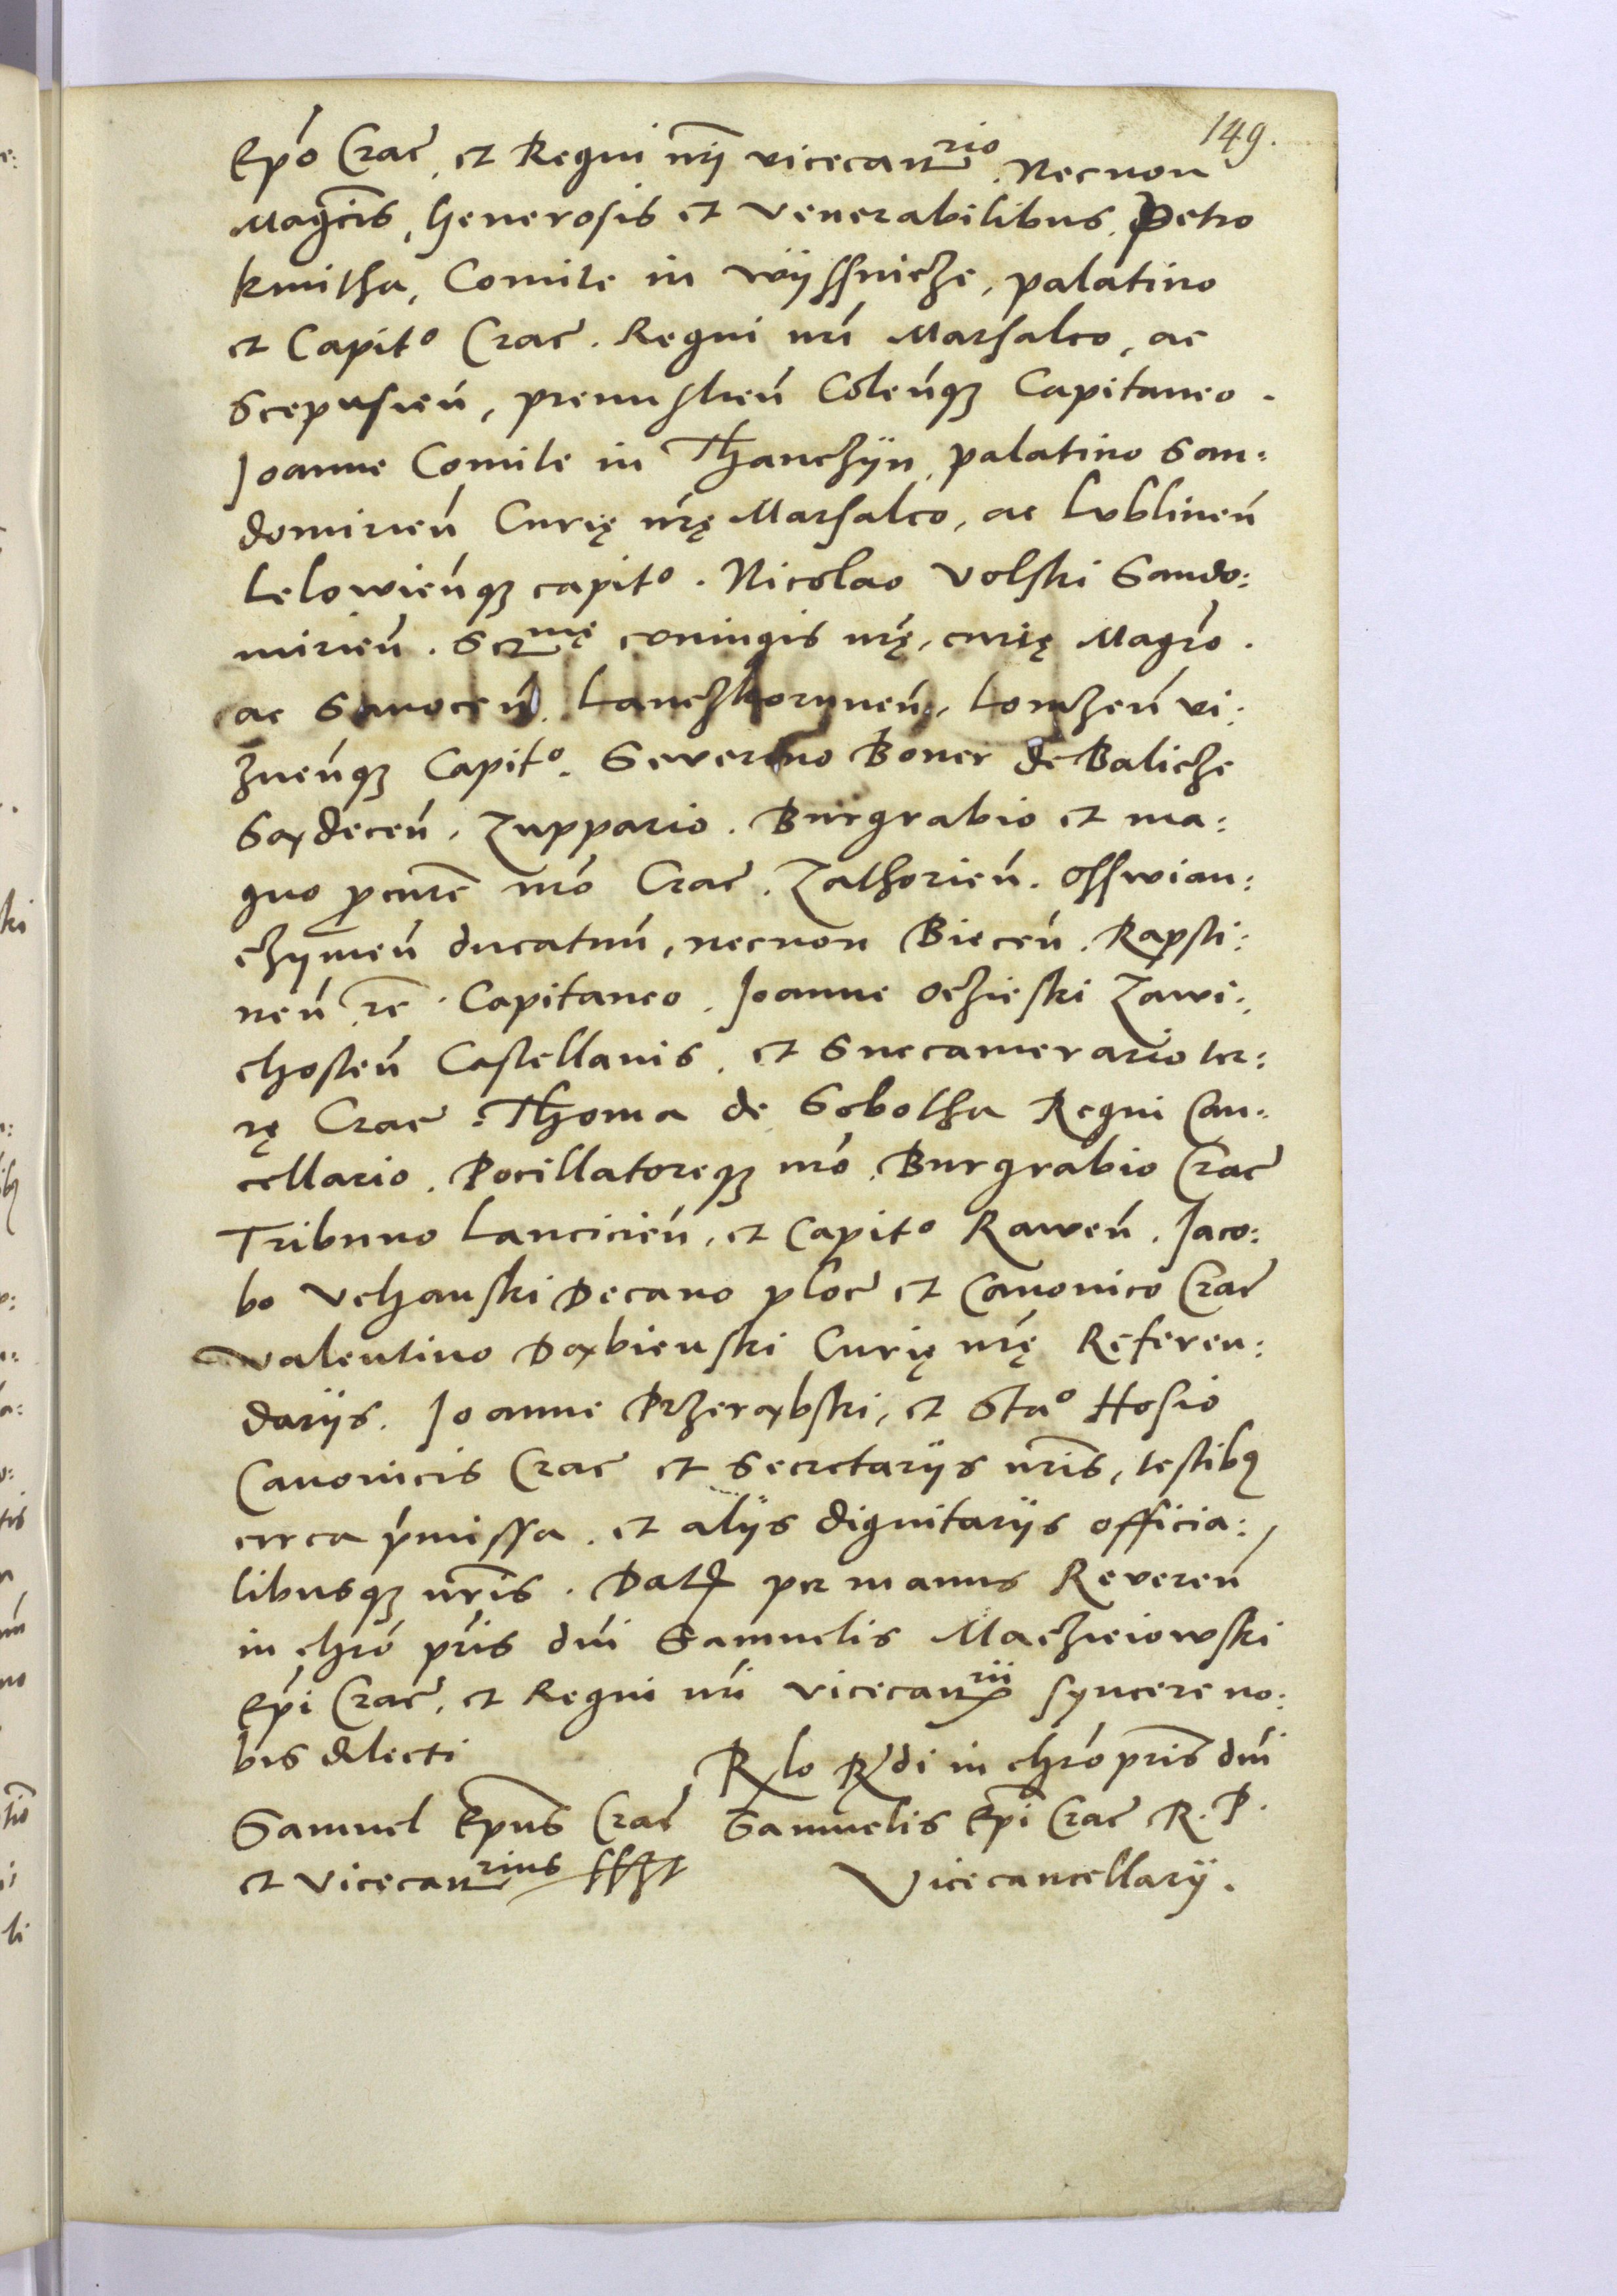 149.
Ep̃o Crac̃, et Regni nr̃i vicecan̄rio, Necnon
Magc̃is, Generosis et Venerabilibus. Petro
Kmitha, Comite in Wyssnicze, palatino
et Capito Crac̃. Regni nr̃i Marsalco, ac
Scepusień, premislień Coleńq3 Capitaneo.
Joanne Comite in Thanczijn, palatino San:
domirień Curię nr̃ę Marsalco, ac Lublineń
Lelowieńq3 capito. Nicolao Volski Sando:
mirień. Ser̄mę coniugis nr̃ę, curię Magr̃o.
ac Sanoceń. Lanczkoruneń, Lomzeń vi:
zneńq3 Capito. Severino Boner de Balicze
Sądeceń, Zuppario. Burgrabio et ma:
gno p̃cure nr̃o Crac̃. Zathorień. Osswian:
czymeń ducatuũ, necnon Bieceń. Rapsti:
neń zc̃. Capitaneo. Joanne Oczieski Zawi:
chosteń Castellanis, et Succamerario ter:
rę Crac̃. Thoma de Sobotha Regni Can:
cellario. Pocillatoreq3 nr̃o, Burgrabio Crac̃
Tribuno Lancicień, et Capito Raweń. Jaco:
bo Vchanski Decano ploc̃ et Canonico Crac̃
Valentino Dąbienski Curię nr̃ę Referen:
darijs. Joanne Przerąbski, et Stao Hosio
Canonicis Crac̃ et Secretarijs nr̃is, testibq
circa p̃missa. et alijs dignitarijs officia:
libusq3 nr̃is. Dat per manus Revereń
in chr̃o pr̃is dñi Samuelis Maczieiowski
Ep̃i Crac̃, et Regni nr̃i vicecan̄rij syncere no:
bis dilecti
Samuel Ep̃us Crac̃
et Vicecan̄rius sszt
Rlo Rndi in chr̃o pr̃is dñi
Samuelis Ep̃i Crac̃ R. P.
Vicecancellarij.